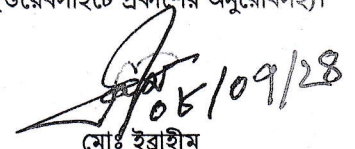 ওয়েবসাইটে প্রকাশের অনুরোধসহ)।
০৮/০৭/২৪
মোঃ ইব্রাহীম